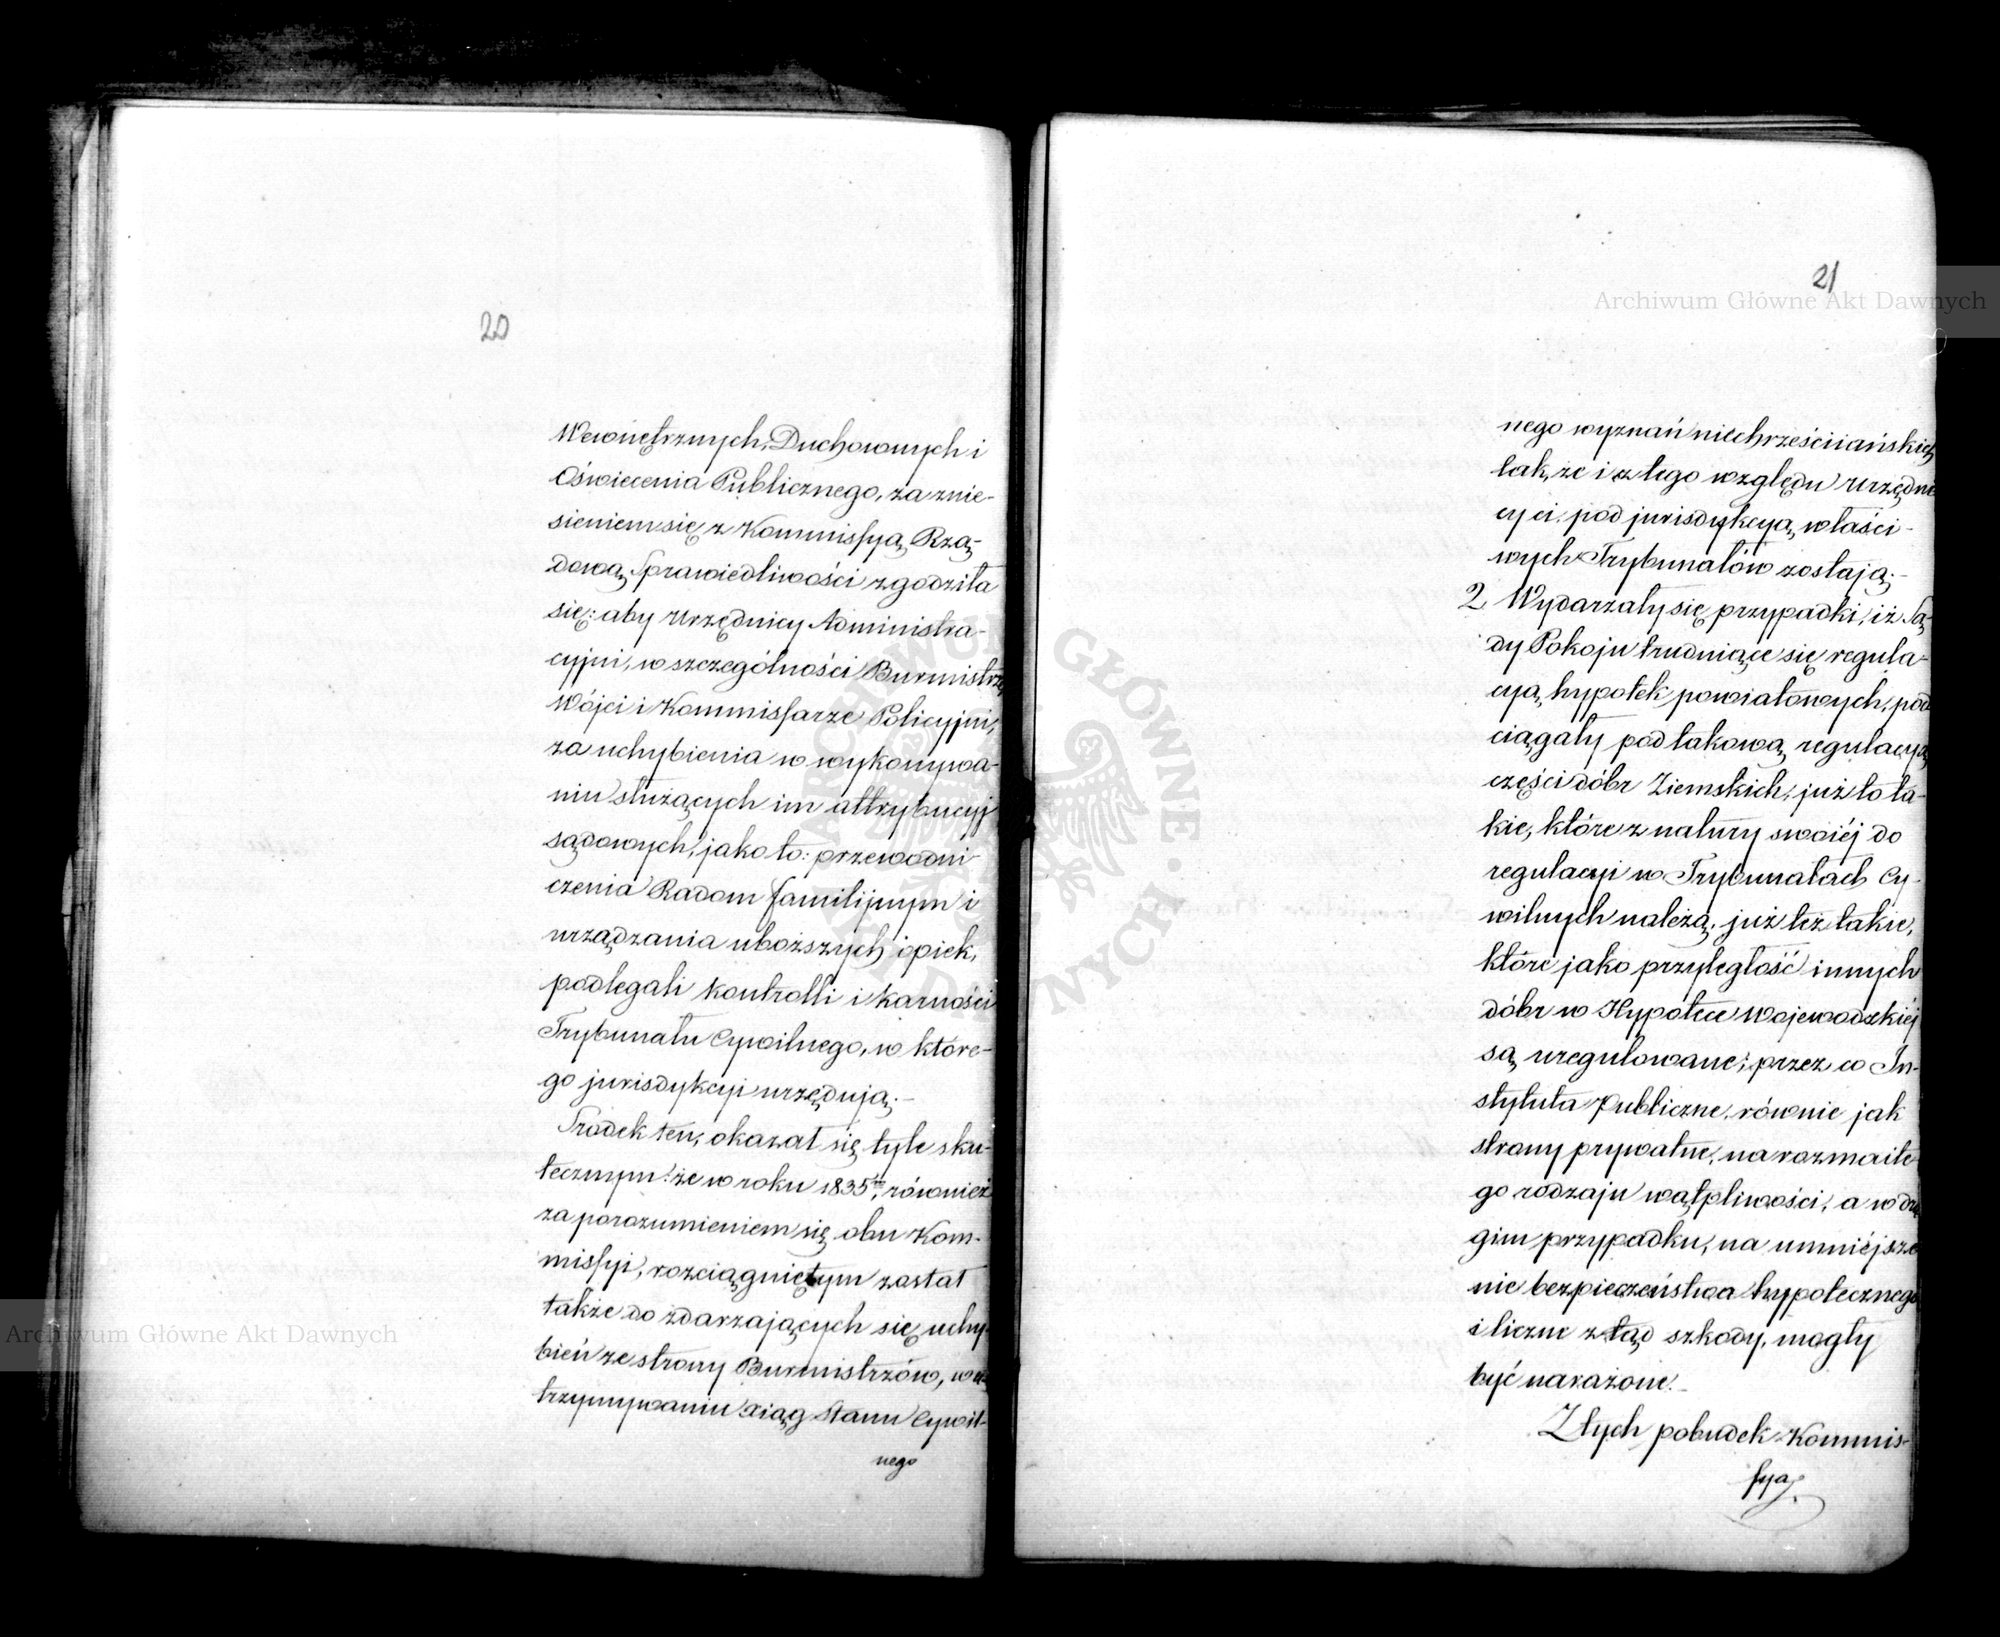 20
Wewnętrznych, Duchownych i
Oświecenia Publicznego, za znie-
sieniem się z Kommissyą Rzą-
dową Sprawiedliwości zgodziła
się: aby Urzędnicy Administra-
cyjni, w szczególności Burmistrze
Wójci i Kommissarze Policyjni,
za uchybienia w wykonywa-
niu służących im attrybucyj
sądowych, jako to: przewodni-
czenia Radom familijnym i
urządzania uboższych opiek,
podlegali kontrolli i karności
Trybunału Cywilnego, w które-
go jurisdykcyi urzędują.-
Środek ten, okazał się tyle sku-
tecznym: że w roku 1835, również
za porozumieniem się obu Kom-
missyi, rozciągniętym został
także do zdarzających się uchy-
bień ze strony Burmistrzów, w u-
trzymywaniu Xiąg Stanu Cywil-
nego
21
nego wyznań niechrześciiańskich
tak, że i z tego względu Urzędni
cy ci, pod jurisdykcyą właści-
wych Trybunałów zostają.-
2 Wydarzały się przypadki, iż Są-
dy Pokoju trudniące się regula-
cyą hypotek powiatowych, pod
ciągały pod takową regulacyą
części dóbr Ziemskich, już to ta-
kie, które z natury swoiéj do
regulacyi w Trybunałach Cy-
wilnych należą, już też takie,
które jako przyległość innych
dóbr w Hypotece Wojewodzkiéj
są uregulowane; przez co In-
stytuta Publiczne, równie jak
strony prywatne, na rozmaite-
go rodzaju wątpliwości, a w dru
gim przypadku, na umniéjsze
nie bezpieczeństwa hypotecznego
i liczne ztąd szkody, mogły
być narażone.-
Z tych pobudek Kommis-
sya
Archiwum Główne Akt Dawnych
Archiwum Główne Akt Dawnych
ARCHIWUM GŁÓWNE AKT DAWNYCH